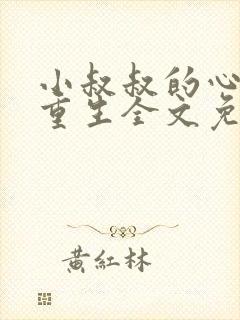 小叔叔的心
重生全文免
黃紅林